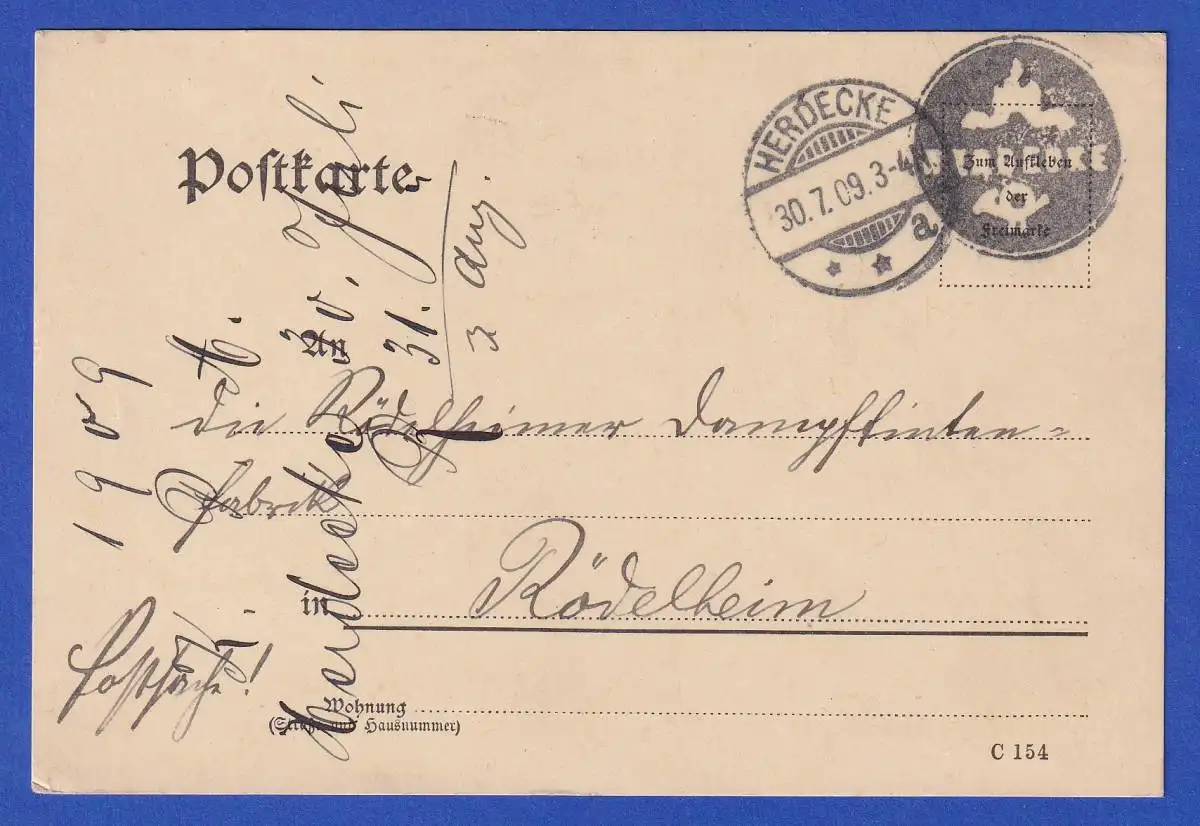 Postkarte
HERDECKE
30.7.09.3-4N.
a
Zum Aufkleben
der
Freimarke
An
die Rödelheimer Dampftinten=
Fabrik
in Rödelheim
Postsache!
Wohnung
(Straße und Hausnummer)
C 154
1909
Herdecke 30. Juli
31.
3 Aug.